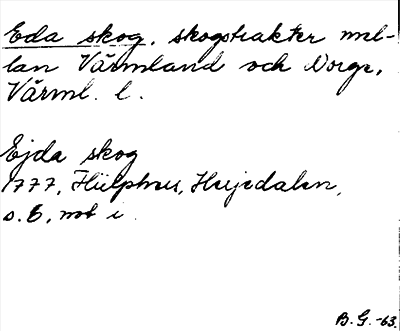 Eda skog, skogstrakter mel-
lan Värmland och Norge,
Värml. l.
Ejda skog
1777, Hülphers, Herjedalen,
s. 6, not i.
B. G. -63.